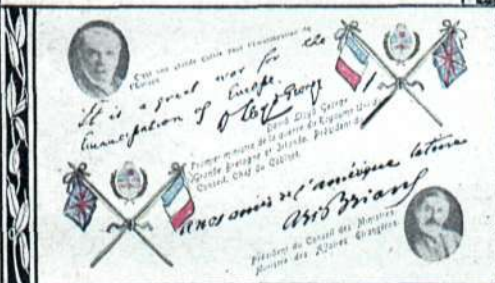 C'est une grande guerre pour l'émancipation de
l'Europe.
It is a great war for the
Emancipation of Europe.
D Lloyd George
David Lloyd George
Premier ministre de la guerre du Royaume Uni de
Grande Bretagne et Irlande, Président du
Conseil, Chef du Cabinet.
à nos amis de l'amérique latine
Aris Briand
Président du Conseil des Ministres,
Ministre des Affaires Etrangères.